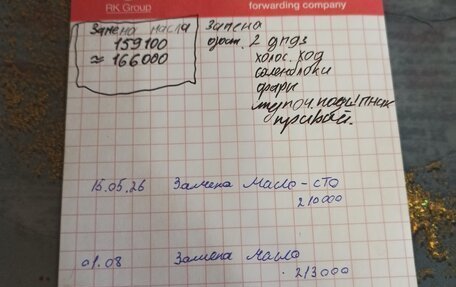 RK Group
forwarding company
Замена масла
159100
≈ 166000
Замена
2 дпдз
холос. ход
соленоблоки
фары
ступич. подшпник
правый.
15.05.26 Замена Масло-сто
210000
01.08 Замена Масло
213000